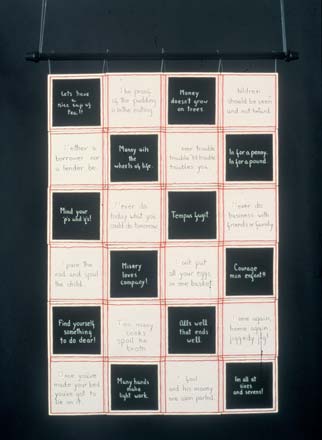 Lets have
a
nice cup of
tea!!
he proof
of the pudding
is in the eating.
Money
doesn't grow
on trees.
hildren
should be seen
and not heard.
either a
borrower nor
a lender be.
Money oils
the
wheels of life.
ever trouble
trouble 'til trouble
troubles you.
In for a penny.
In for a pound.
Mind your
'p's and q's!
ever do
today what you
could do tomorrow.
Tempus fugit.
ever do
business with
friends or family.
pare the
rod and spoil
the child.
Misery
loves
company!
ont put
all your eggs
in one basket.
Courage
mon enfant!!
Find yourself
something
to do dear!
oo many
cooks
spoil the
broth.
Alls well
that ends
well.
ome again,
home again,
jiggedy jig!
you've
made your bed
you've got to
lie on it.
Many hands
make
light work.
fool
and his money
are soon parted.
Im all at
sixes
and sevens!